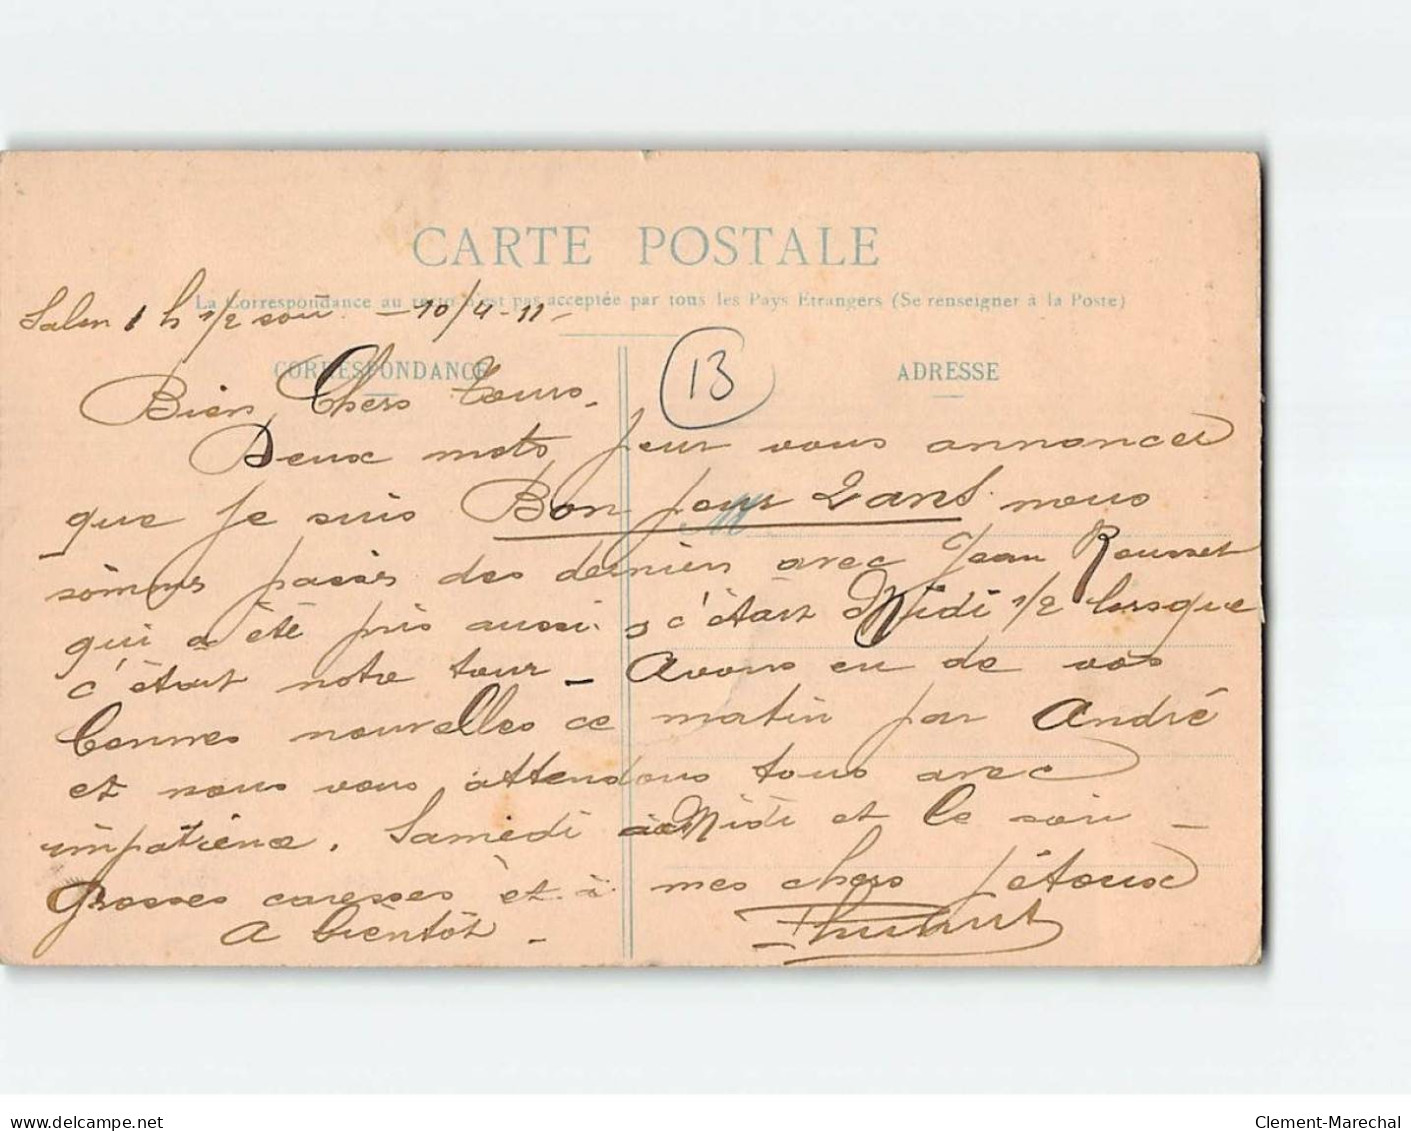 CARTE POSTALE
La Correspondance au recto n'est pas acceptée par tous les Pays Etrangers (Se renseigner à la Poste)
Salon 1 h 1/2 soir - 10/4-11 -
CORRESPONDANCE
ADRESSE
13
Bien Chers Tous.
Deux mots pour vous annoncer
que je suis Bon pour 2 ans. nous
sommes passés des derniers avec Jean Rousset
qui a été pris aussi, c'était Midi 1/2 lorsque
c'était notre tour - Avons eu de vos
bonnes nouvelles ce matin par André
et nous vous attendons tous avec
impatience. Samedi à Midi et le soir -
Grosses caresses et à mes chers
A bientôt -
Clement-Marechal
delcampe.net